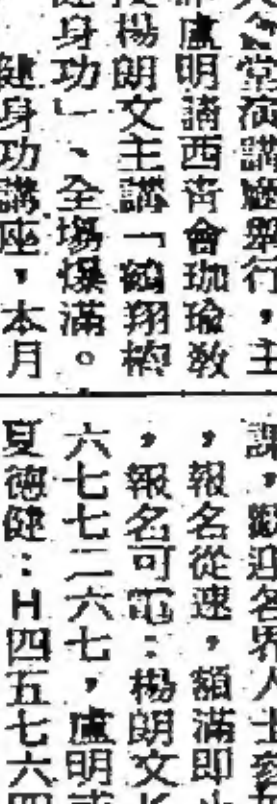 會堂演講廳舉行，主
盧明請西青會珈瑜教
楊朗文主講「鶴翔樁
身功」、全場爆滿。
健身功講座，本月
課，歡迎各界人士參
，報名從速，額滿即
，報名可電：楊朗文
六七七二六七，盧明
夏德健：H四五七六